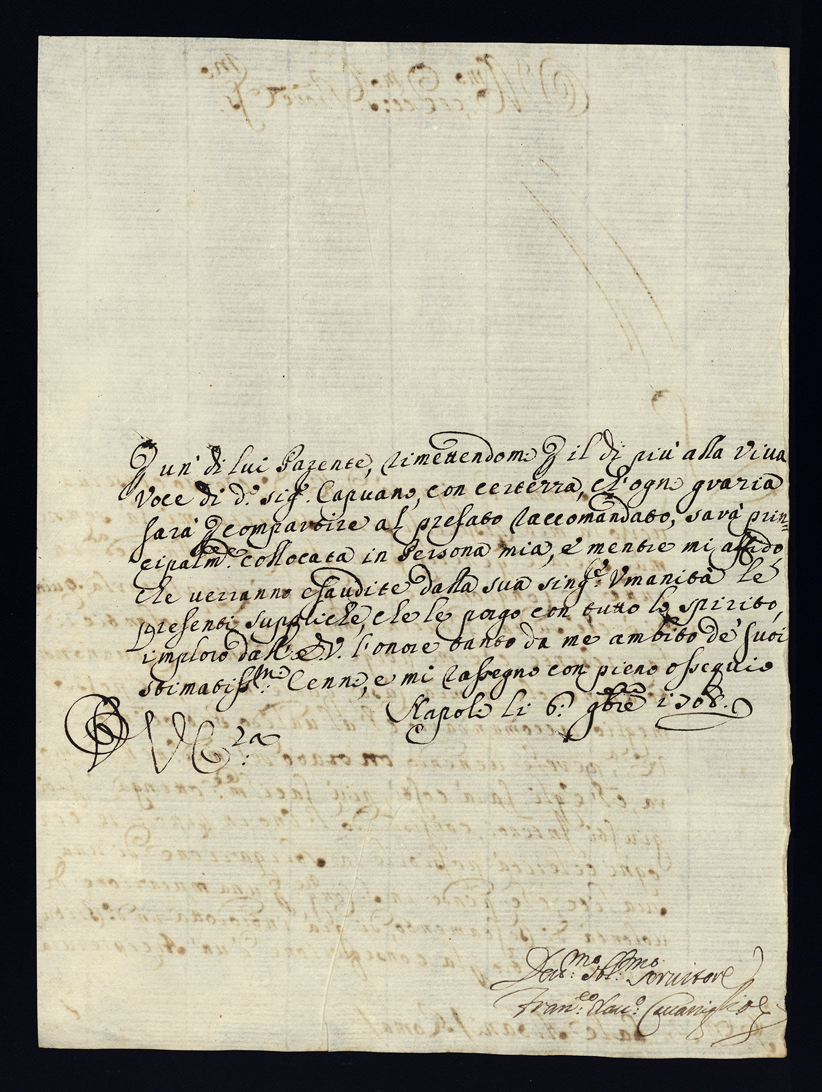 P un' di lui Parente, rimettendomi P il di più alla viva
voce di d.º Sig.r Capuano, con certezza, ch'ogni grazia
sarà P compartire al prefato raccomandato, sarà prin=
cipalm.te collocata in Persona mia, e mentre mi affido
che verranno esaudite dalla sua sing.re Umanità le
presenti suppliche, che le porgo con tutto lo spirito,
imploro dall' E.V. l'onore tanto da me ambito de' suoi
stimatiss.mi Cenni, e mi rassegno con pieno ossequio
Napoli li 6: 9bre 1708.
D V E.za
Dev.mo Obl.mo Servitore
Fran.co Sav.o